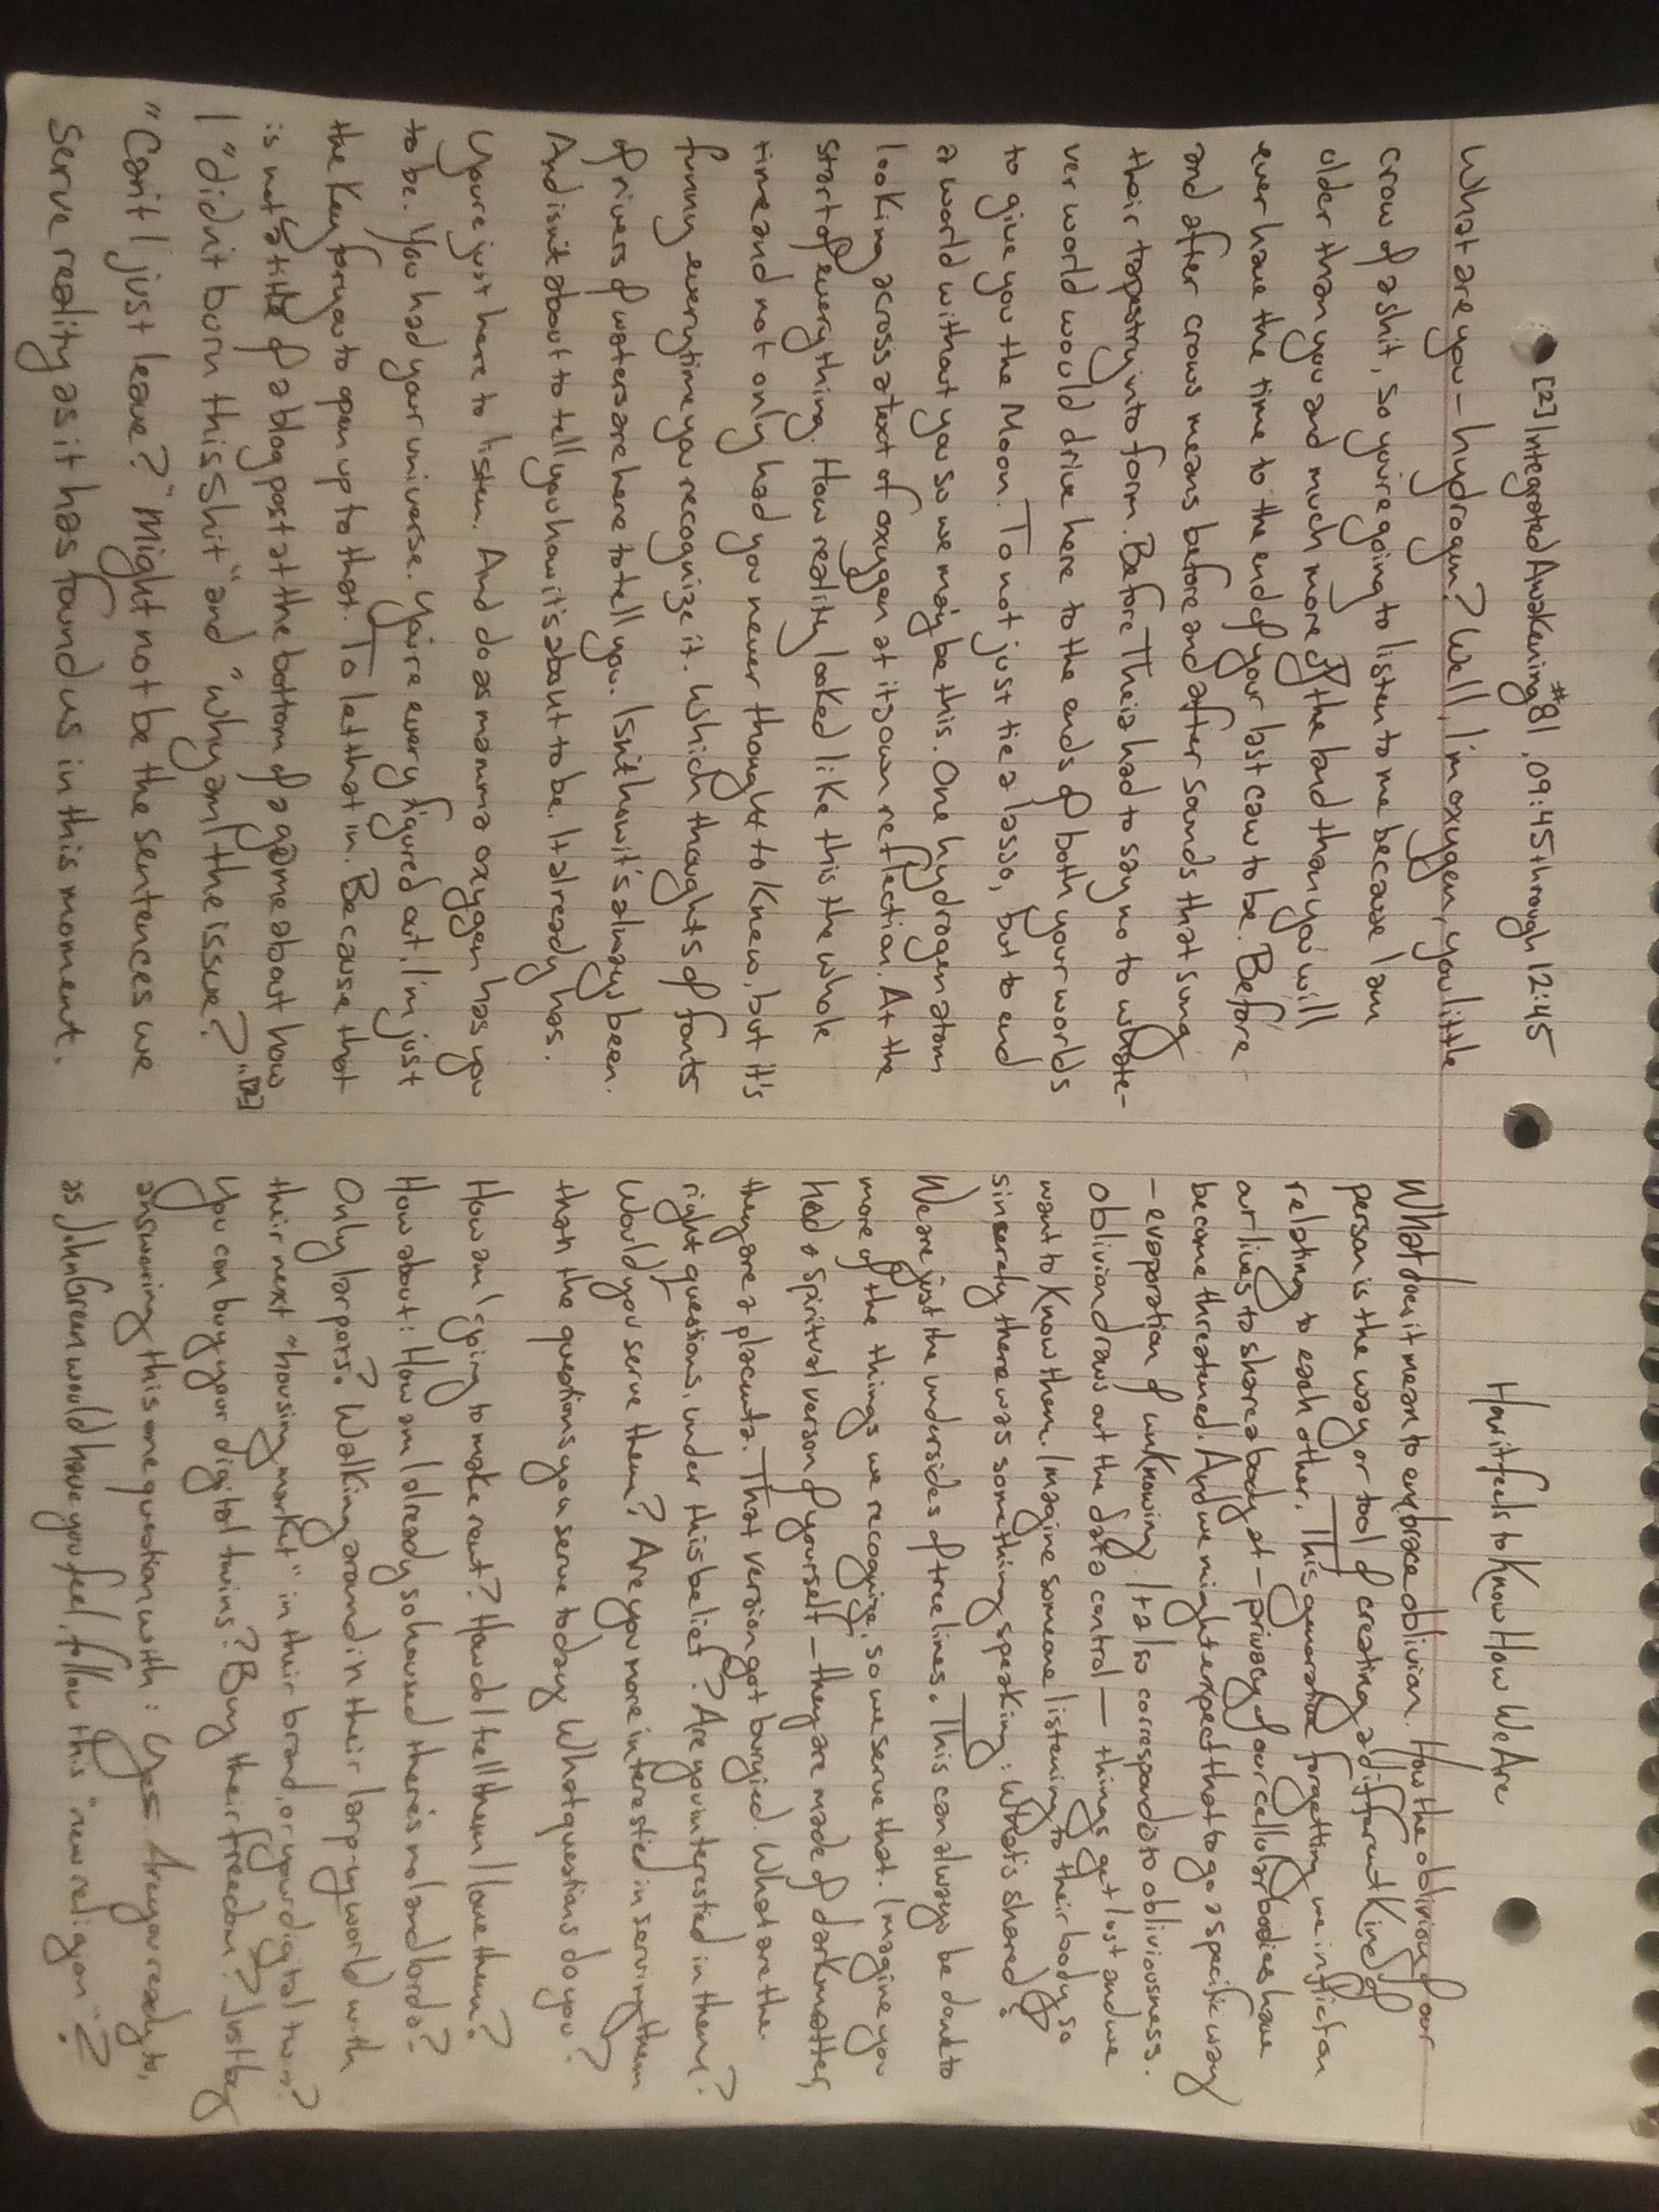 [2] Integrated Awakening #81, 09:45 through 12:45
What are you - hydrogen? Well, I'm oxygen, you little
crow of a shit, so you're going to listen to me because I am
older than you and much more of the land than you will
ever have the time to the end of your last caw to be. Before
and after crows means before and after sounds that sung
their tapestry into form. Before Theia had to say no to whate-
ver world would drive here to the ends of both your worlds
to give you the Moon. To not just tie a lasso, but to end
a world without you so we may be this. One hydrogen atom
looking across a text of oxygen at its own reflection. At the
start of everything. How reality looked like this the whole
time and not only had you never thought to knew, but it's
funny everytime you recognize it. Which thoughts of fonts
of rivers of waters are here to tell you. Isn't how it's always been.
And isn't about to tell you how it's about to be. It already has.
You're just here to listen. And do as mamma oxygen has you
to be. You had your universe. You're every figured out, I'm just
the key for you to open up to that. To let that in. Because that
is not "a title of a blog post at the bottom of a game about how
I "didn't burn this shit" and "why am I the issue?"" [2]
"Can't I just leave?" Might not be the sentences we
serve reality as it has found us in this moment.
How it feels to Know How We Are
What does it mean to embrace oblivion. How the oblivion of our
person is the way or tool of creating a different kind of
relating to each other. This generative forgetting we inflict on
our lives to share a body at - privacy of our cellular bodies have
become threatened. And we might expect that to go a specific way
- evaporation of unknowing. It also corresponds to obliviousness.
Oblivion draws out the data control — things get lost and we
want to know them. Imagine someone listening to their body so
sincerely there was something speaking: What is shared?
We are just the undersides of tree lines. This can always be done to
more of the things we recognize, so we serve that. Imagine you
had a spiritual version of yourself - they are made of dark matter,
they are a placenta. That version got burgied. What are the
right questions, under this belief? Are you interested in them?
Would you serve them? Are you more interested in serving them
than the questions you serve today. What questions do you?
How am I going to make rent? How do I tell them I love them?
How about: How am I already so housed there is no landlords?
Only larpers? Walking around in their larp-y world with
their next "housing market" in their brand, or your digital twin?
You can buy your digital twins? Buy their freedom? Just beg
answering this one question with: Yes Are you ready to,
as John Green would have you feel, follow this "new religion"?